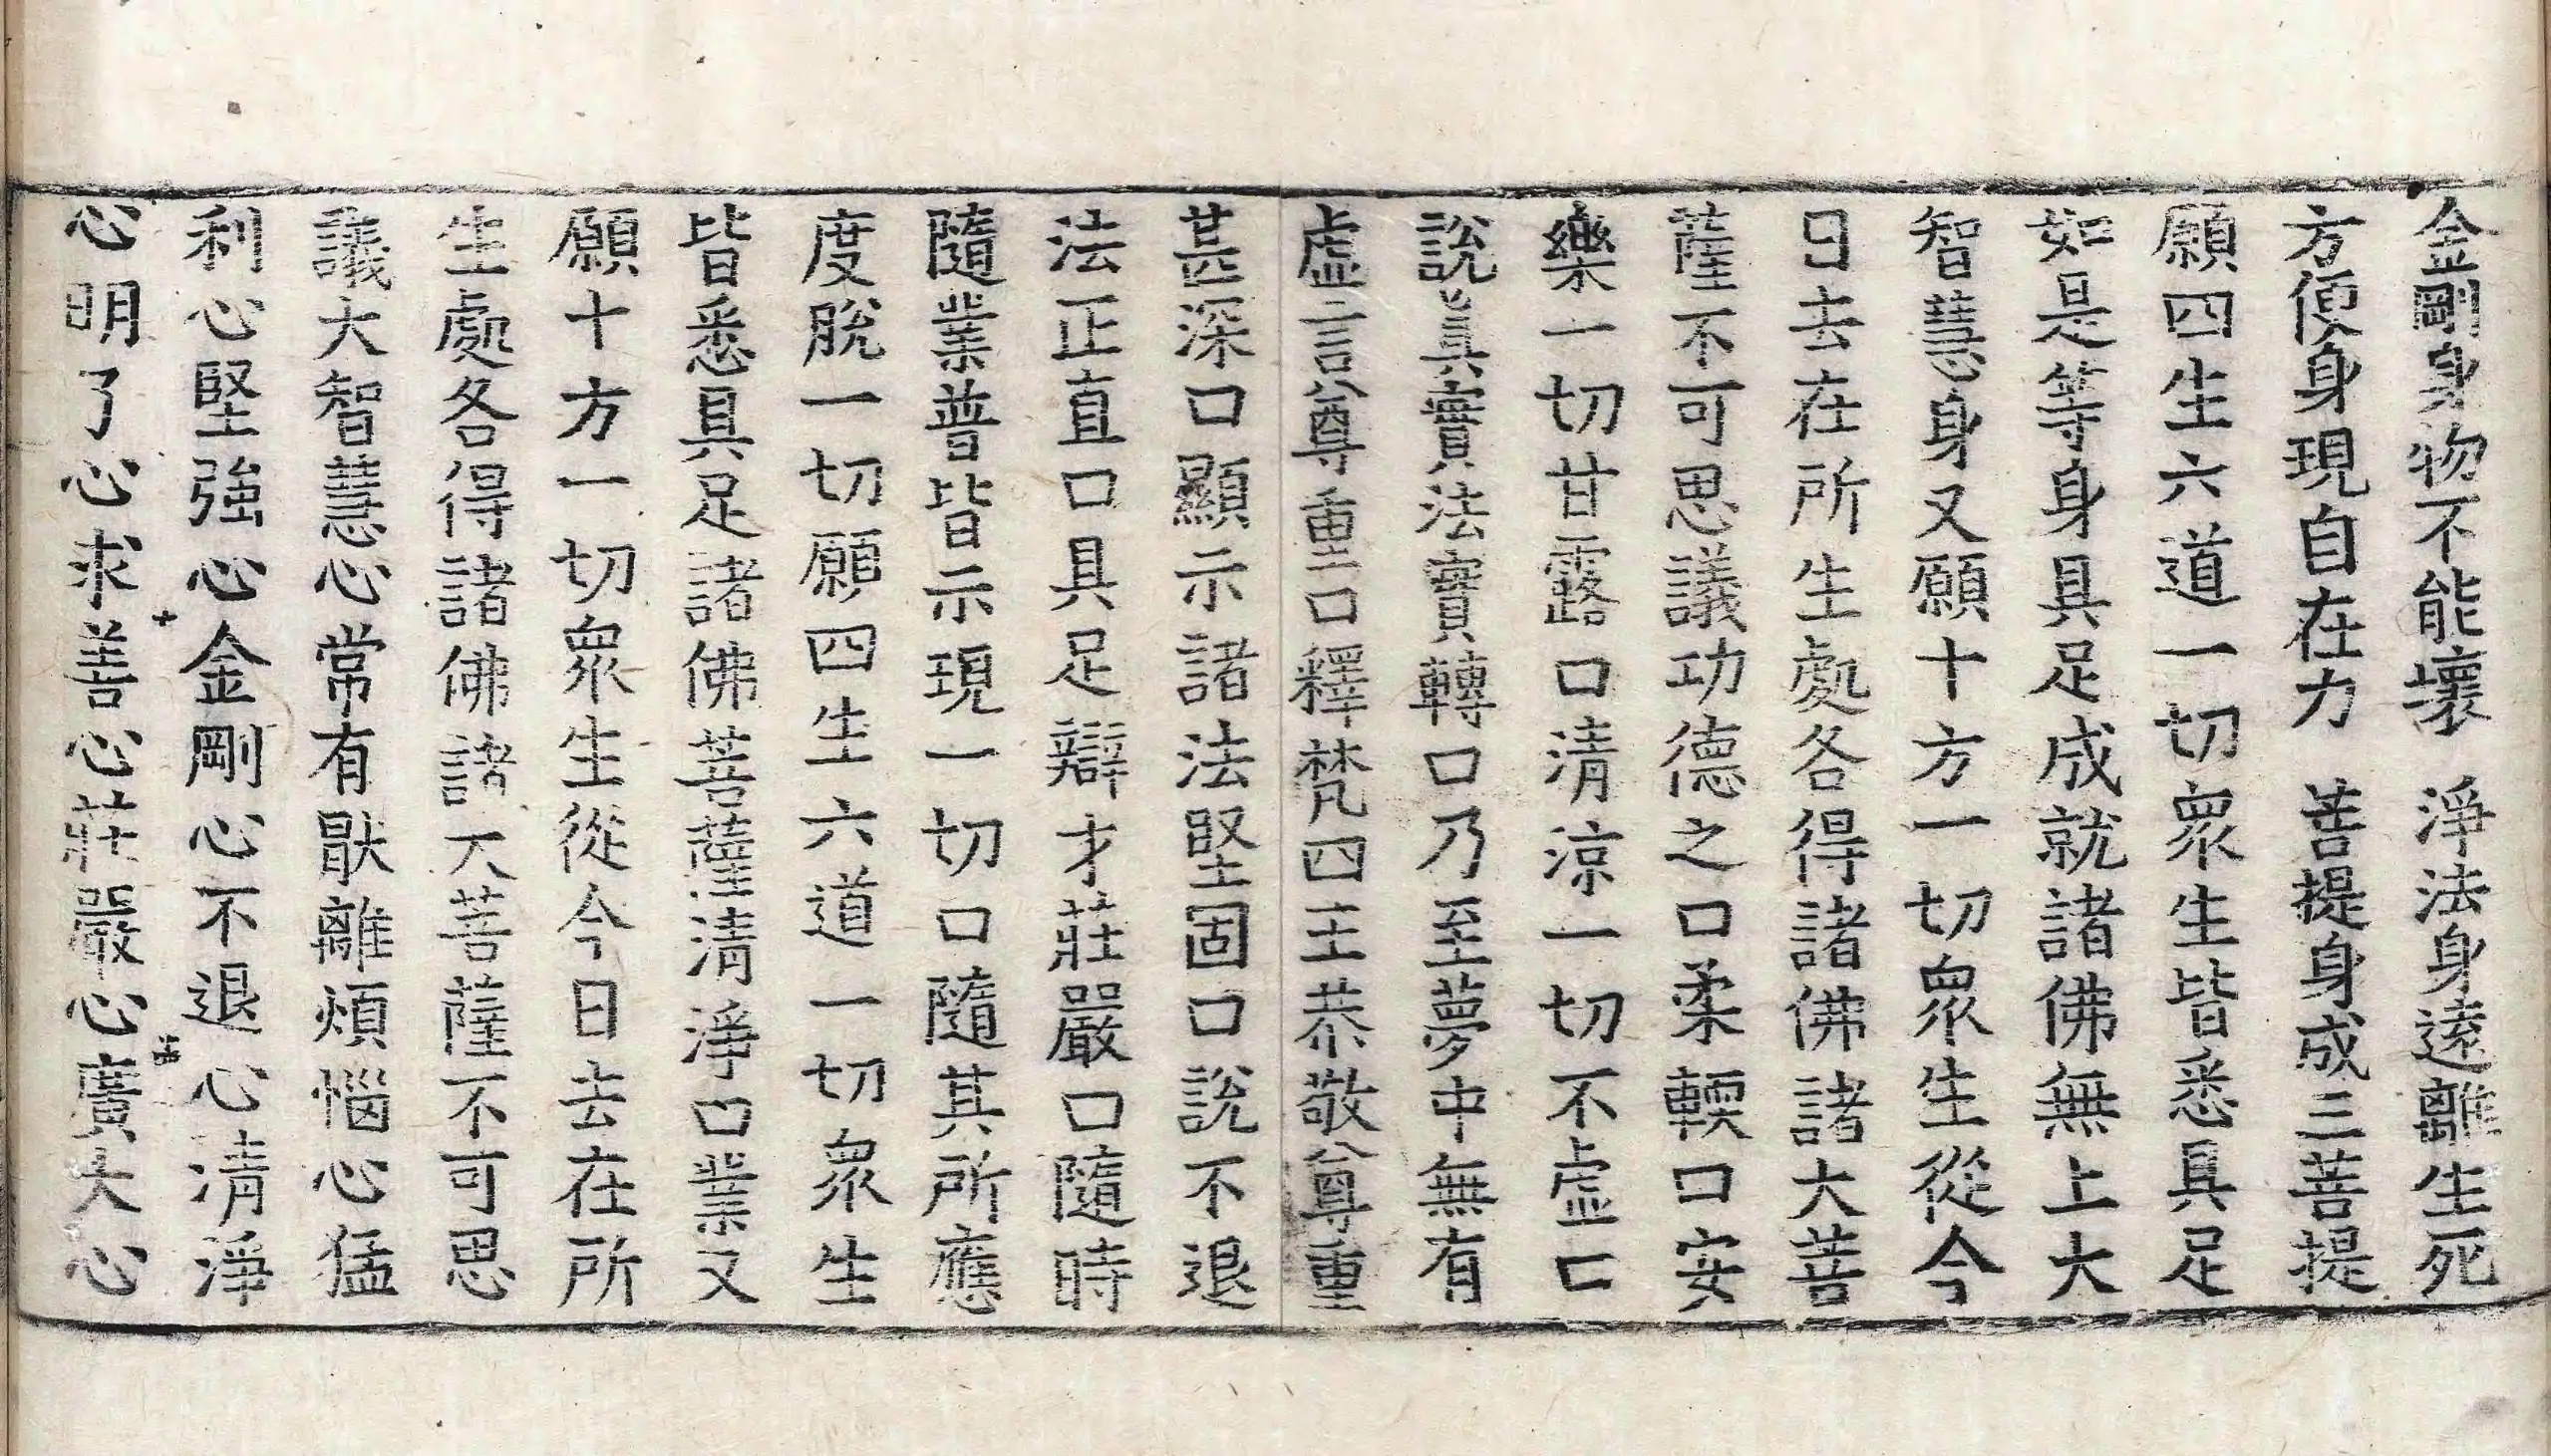 金剛身物不能壞 淨法身遠離生死
方便身現自在力 菩提身成三菩提
願四生六道一切衆生皆悉具足
如是等身具足成就諸佛無上大
智慧身又願十方一切衆生從今
日去在所生處各得諸佛諸大菩
薩不可思議功德之口柔輭口安
樂一切甘露口清涼一切不虛口
說真實法實轉口乃至夢中無有
虛言尊重口釋梵四王恭敬尊重
甚深口顯示諸法堅固口說不退
法正直口具足辯才莊嚴口隨時
隨業普皆示現一切口隨其所應
度脫一切願四生六道一切衆生
皆悉具足諸佛菩薩清淨口業又
願十方一切衆生從今日去在所
生處各得諸佛諸大菩薩不可思
議大智慧心常有猒離煩惱心猛
利心堅強心金剛心不退心清淨
心明了心求善心莊嚴心廣大心